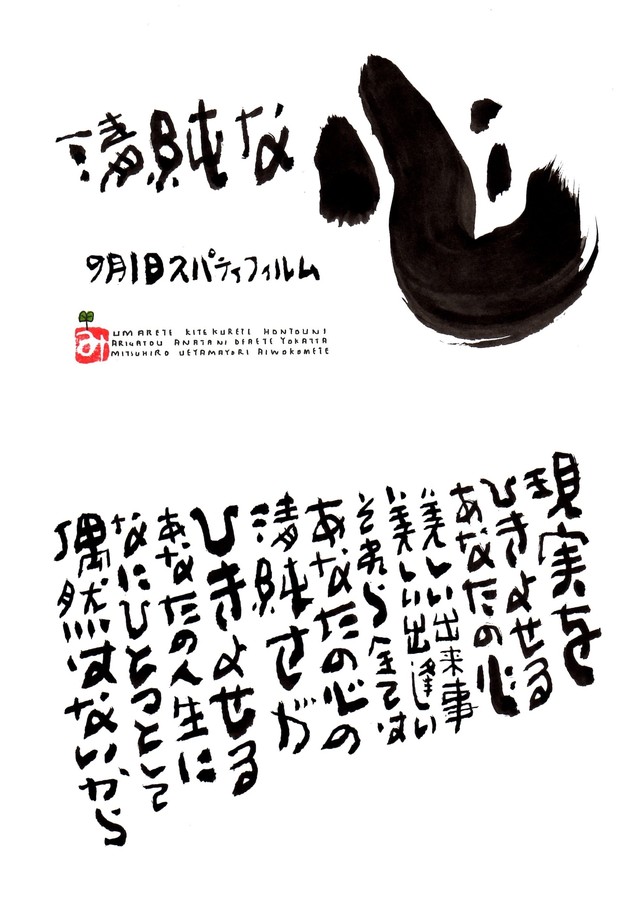 清純な心
9月1日スパティフィルム
み
UMARETE KITEKURETE HONTOUNI
ARIGATOU ANATANI DEARETE YOKATTA
MITSUHIRO UEYAMAYORI AIWOKOMETE
現実を
ひきよせる
あなたの心
美しい出来事
美しい出逢い
それら全ては
あなたの心の
清純さが
ひきよせる
あなたの人生に
なにひとつとして
偶然はないから